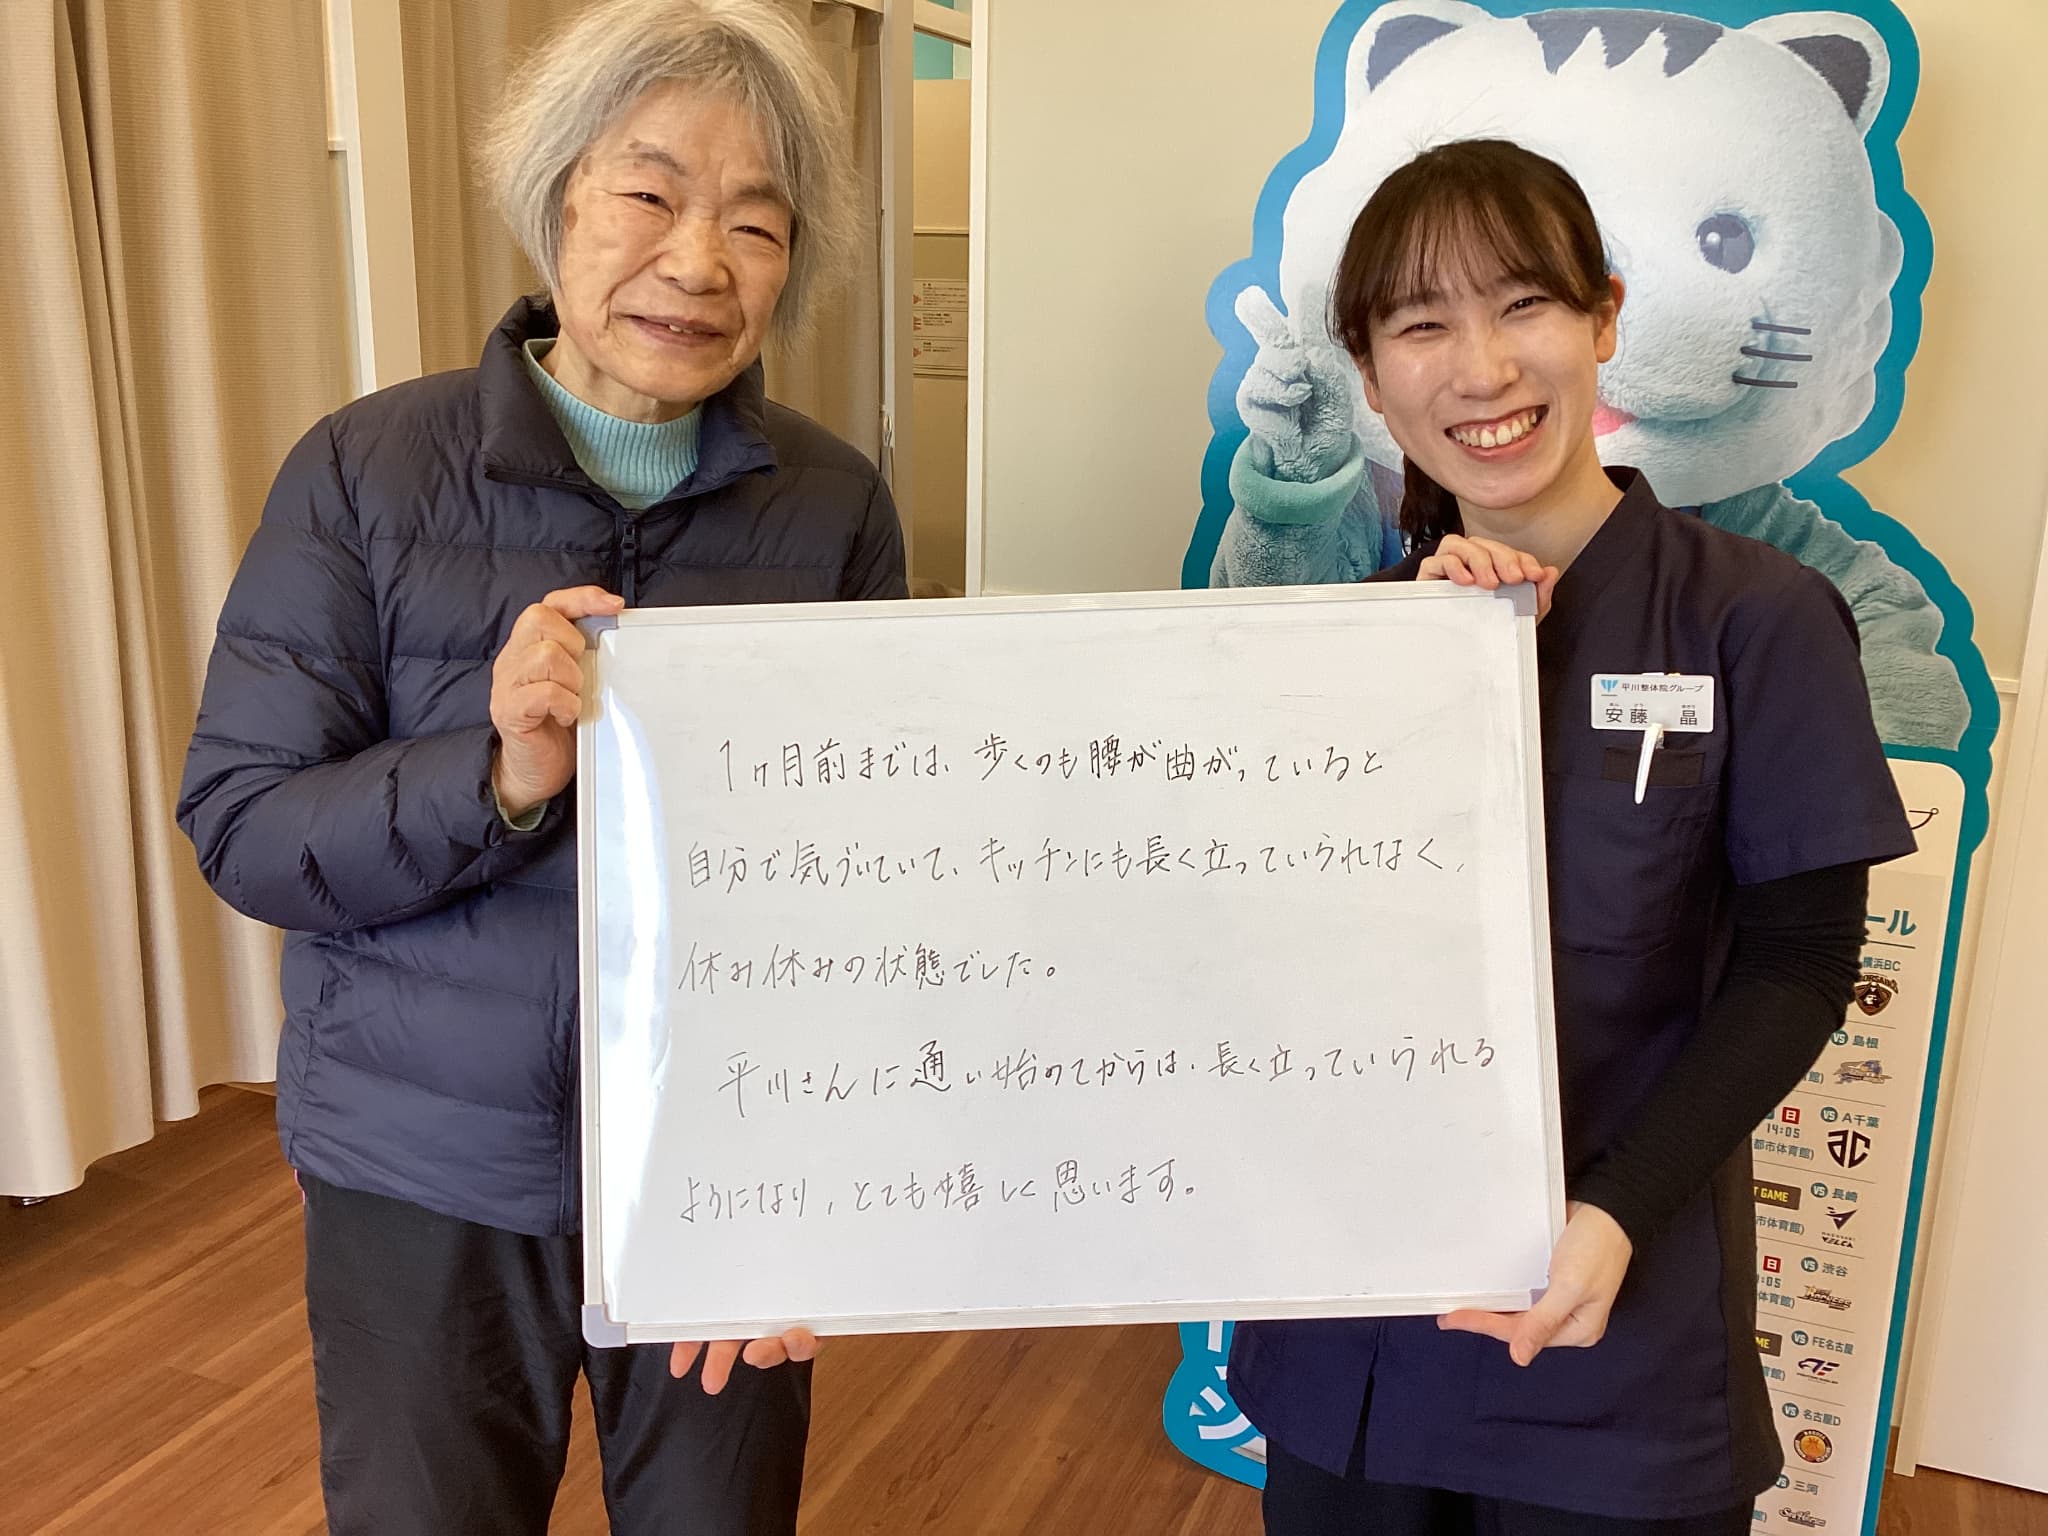 1ヶ月前までは、歩くのも腰が曲がっていると
自分で気づいていて、キッチンにも長く立っていられなく、
休み休みの状態でした。
平川さんに通い始めてからは、長く立っていられる
ようになり、とても嬉しく思います。
平川整体院グループ
あん どう あきら
安藤 晶
プ
ール
横浜BC
VS 島根
館)
日 VS A千葉
14:05
都市体育館)
T GAME VS 長崎
市体育館)
日 VS 渋谷
:05
体育館)
ME VS FE名古屋
育館)
VS 名古屋D
VS 三河
館)
ツ